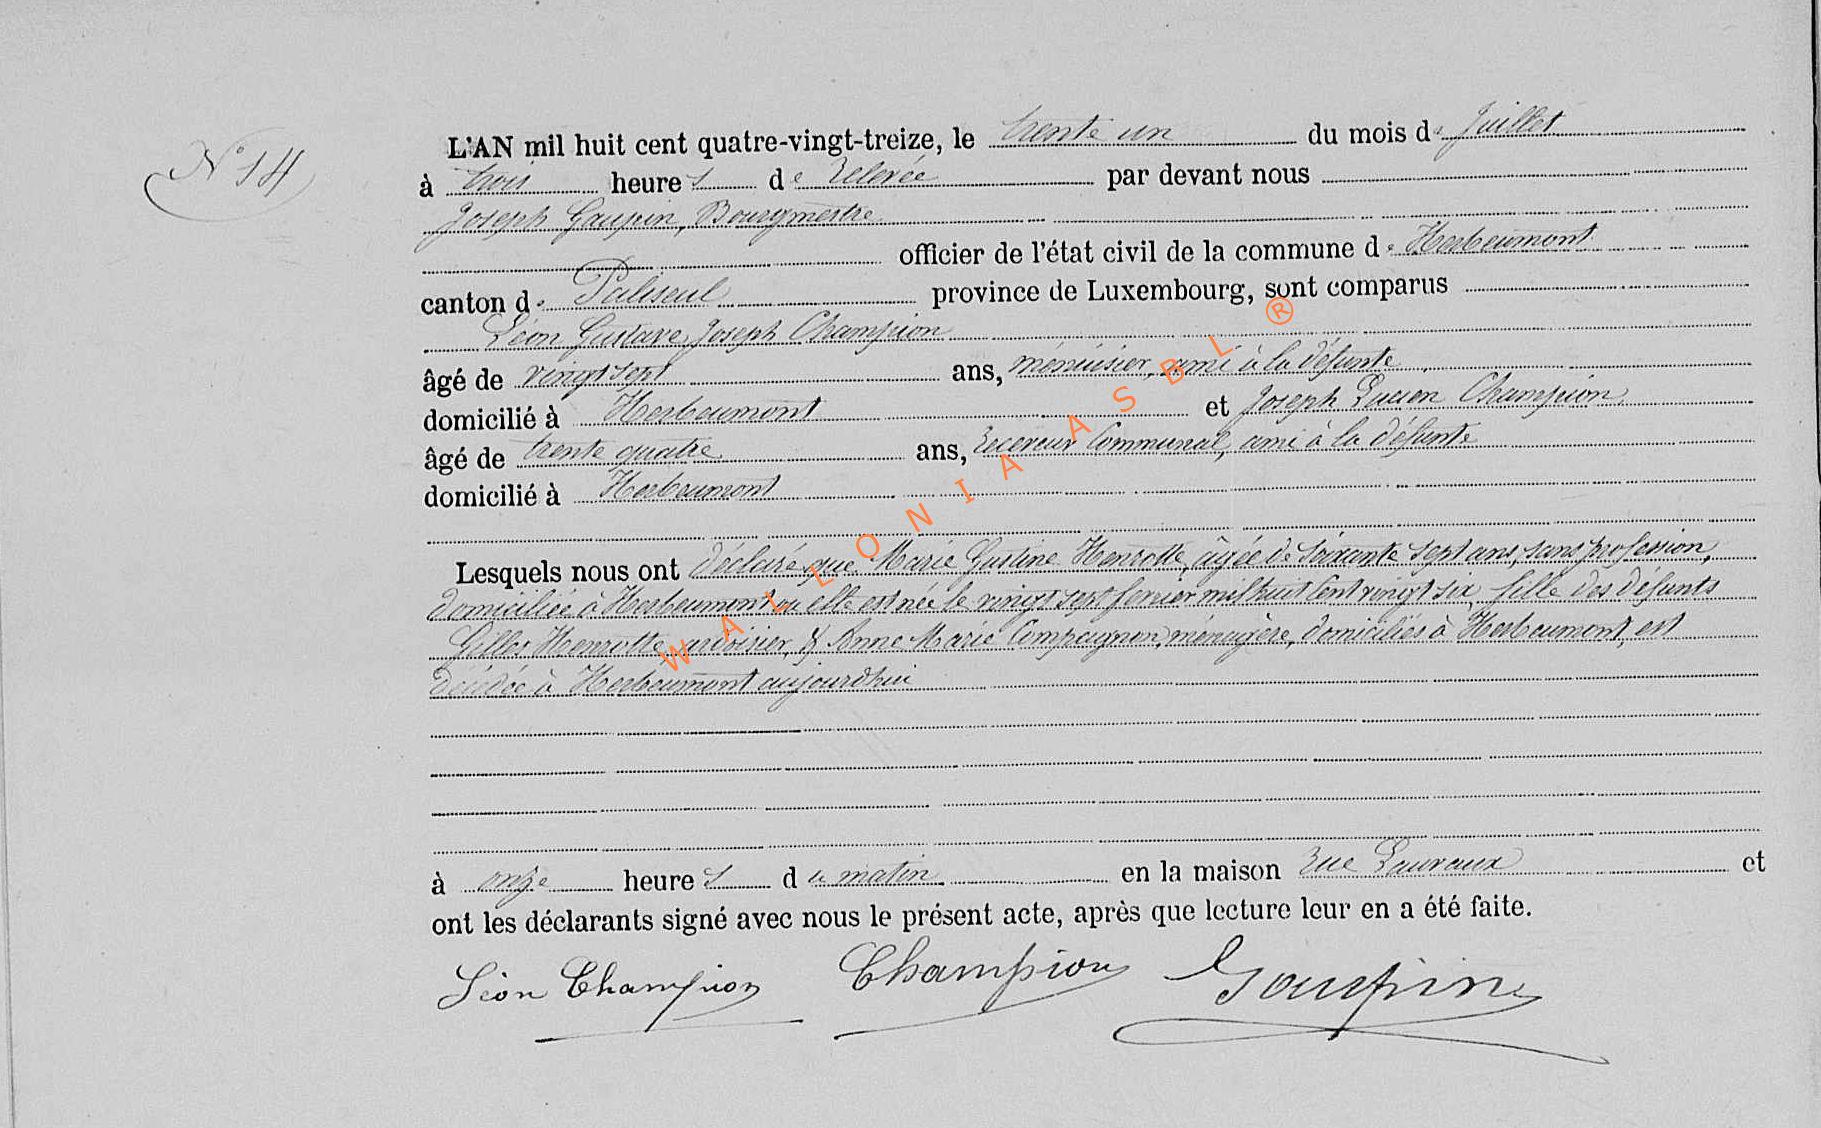 N° 14
L'AN mil huit cent quatre-vingt-treize, le trente un du mois de Juillet
à trois heures de relevée par devant nous
Joseph Gaupin, Bourgmestre
officier de l'état civil de la commune de Herbeumont
canton de Paliseul province de Luxembourg, sont comparus
Léon Gustave Joseph Champion
âgé de vingt sept ans, menuisier, ami à la défunte
domicilié à Herbeumont et Joseph Lucien Champion
âgé de trente quatre ans, receveur Communal, ami à la défunte
domicilié à Herbeumont
Lesquels nous ont déclaré que Marie Justine Henrotte, âgée de soixante sept ans, sans profession,
domiciliée à Herbeumont où elle est née le vingt sept fevrier mil huit cent vingt six, fille des défunts
Gilles Henrotte, ardoisier, & Anne Marie Compagnon, ménagère, domiciliés à Herbeumont, est
décédée à Herbeumont aujourdhui
à onze heures du matin en la maison rue Lauvaux et
ont les déclarants signé avec nous le présent acte, après que lecture leur en a été faite.
Léon Champion Champion Gaupin
WALLONIA ASBL ®